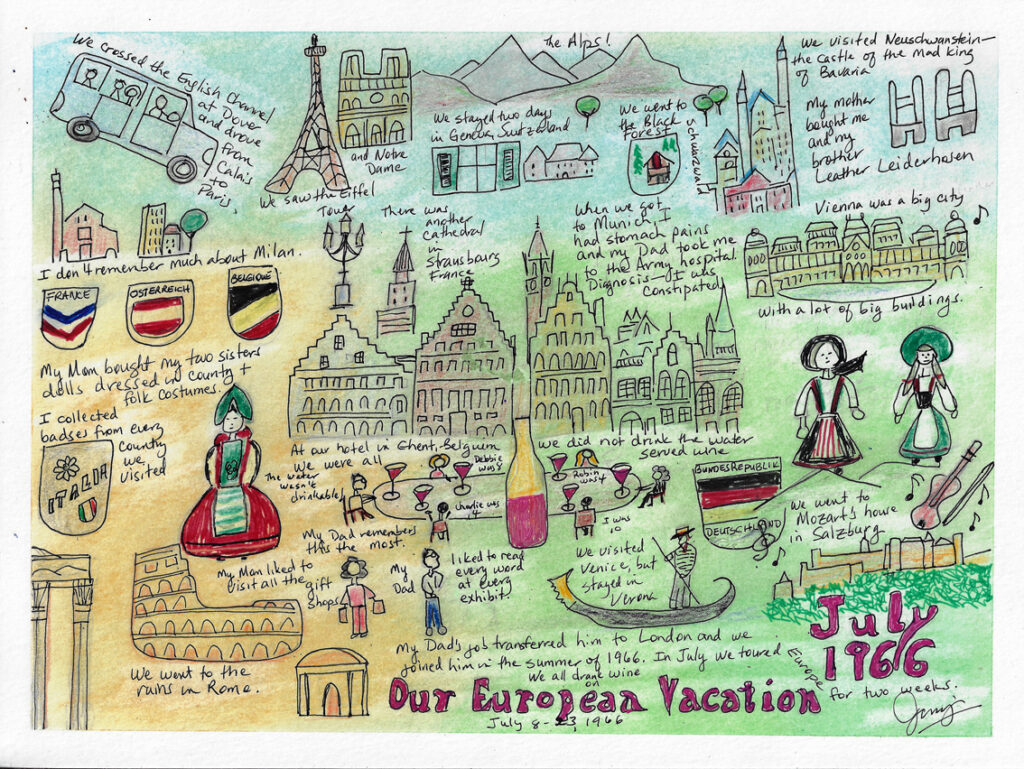 We crossed the English Channel
at Dover
and drove
from
Calais
to
Paris.
We saw the Eiffel
Tower
and Notre
Dame
The Alps!
We stayed two days
in Geneva, Switzerland
We went to
the Black
Forest
Schwarzwald
We visited Neuschwanstein—
the castle of the mad king
of Bavaria
My mother
bought me
and my
brother
Leather Leiderhosen
I don't remember much about Milan.
There was
another
cathedral
in
strausbourg
France
When we got
to Munich, I
had stomach pains
and my Dad took me
to the Army hospital.
Diagnosis—I was
Constipated
Vienna was a big city
with a lot of big buildings.
FRANCE
ÖSTERREICH
BELGIQUE
My Mom bought my two sisters
dolls dressed in county +
folk costumes.
I collected
badses from every
Country
we
visited
ITALIA
At our hotel in Ghent, Belgium
we were all
served wine
we did not drink the water
The water
wasn't
drinkable
Debbie
was 8
Charlie was
Robin
was 4
I was
10
My Dad remembers
this the most.
BUNDESREPUBLIK
DEUTSCHLAND
We went to
Mozart's house
in Salzburg
My Mom liked to
visit all the
gift
shops
My
Dad
liked to read
every word
at every
exhibit.
We visited
Venice, but
stayed in
Verona
We went to the
ruins in Rome.
My Dad's job transferred him to London and we
joined him in the summer of 1966. In July we toured
Europe
for two weeks.
We all drank wine
on
Our European Vacation
July 8-23, 1966
July
1966